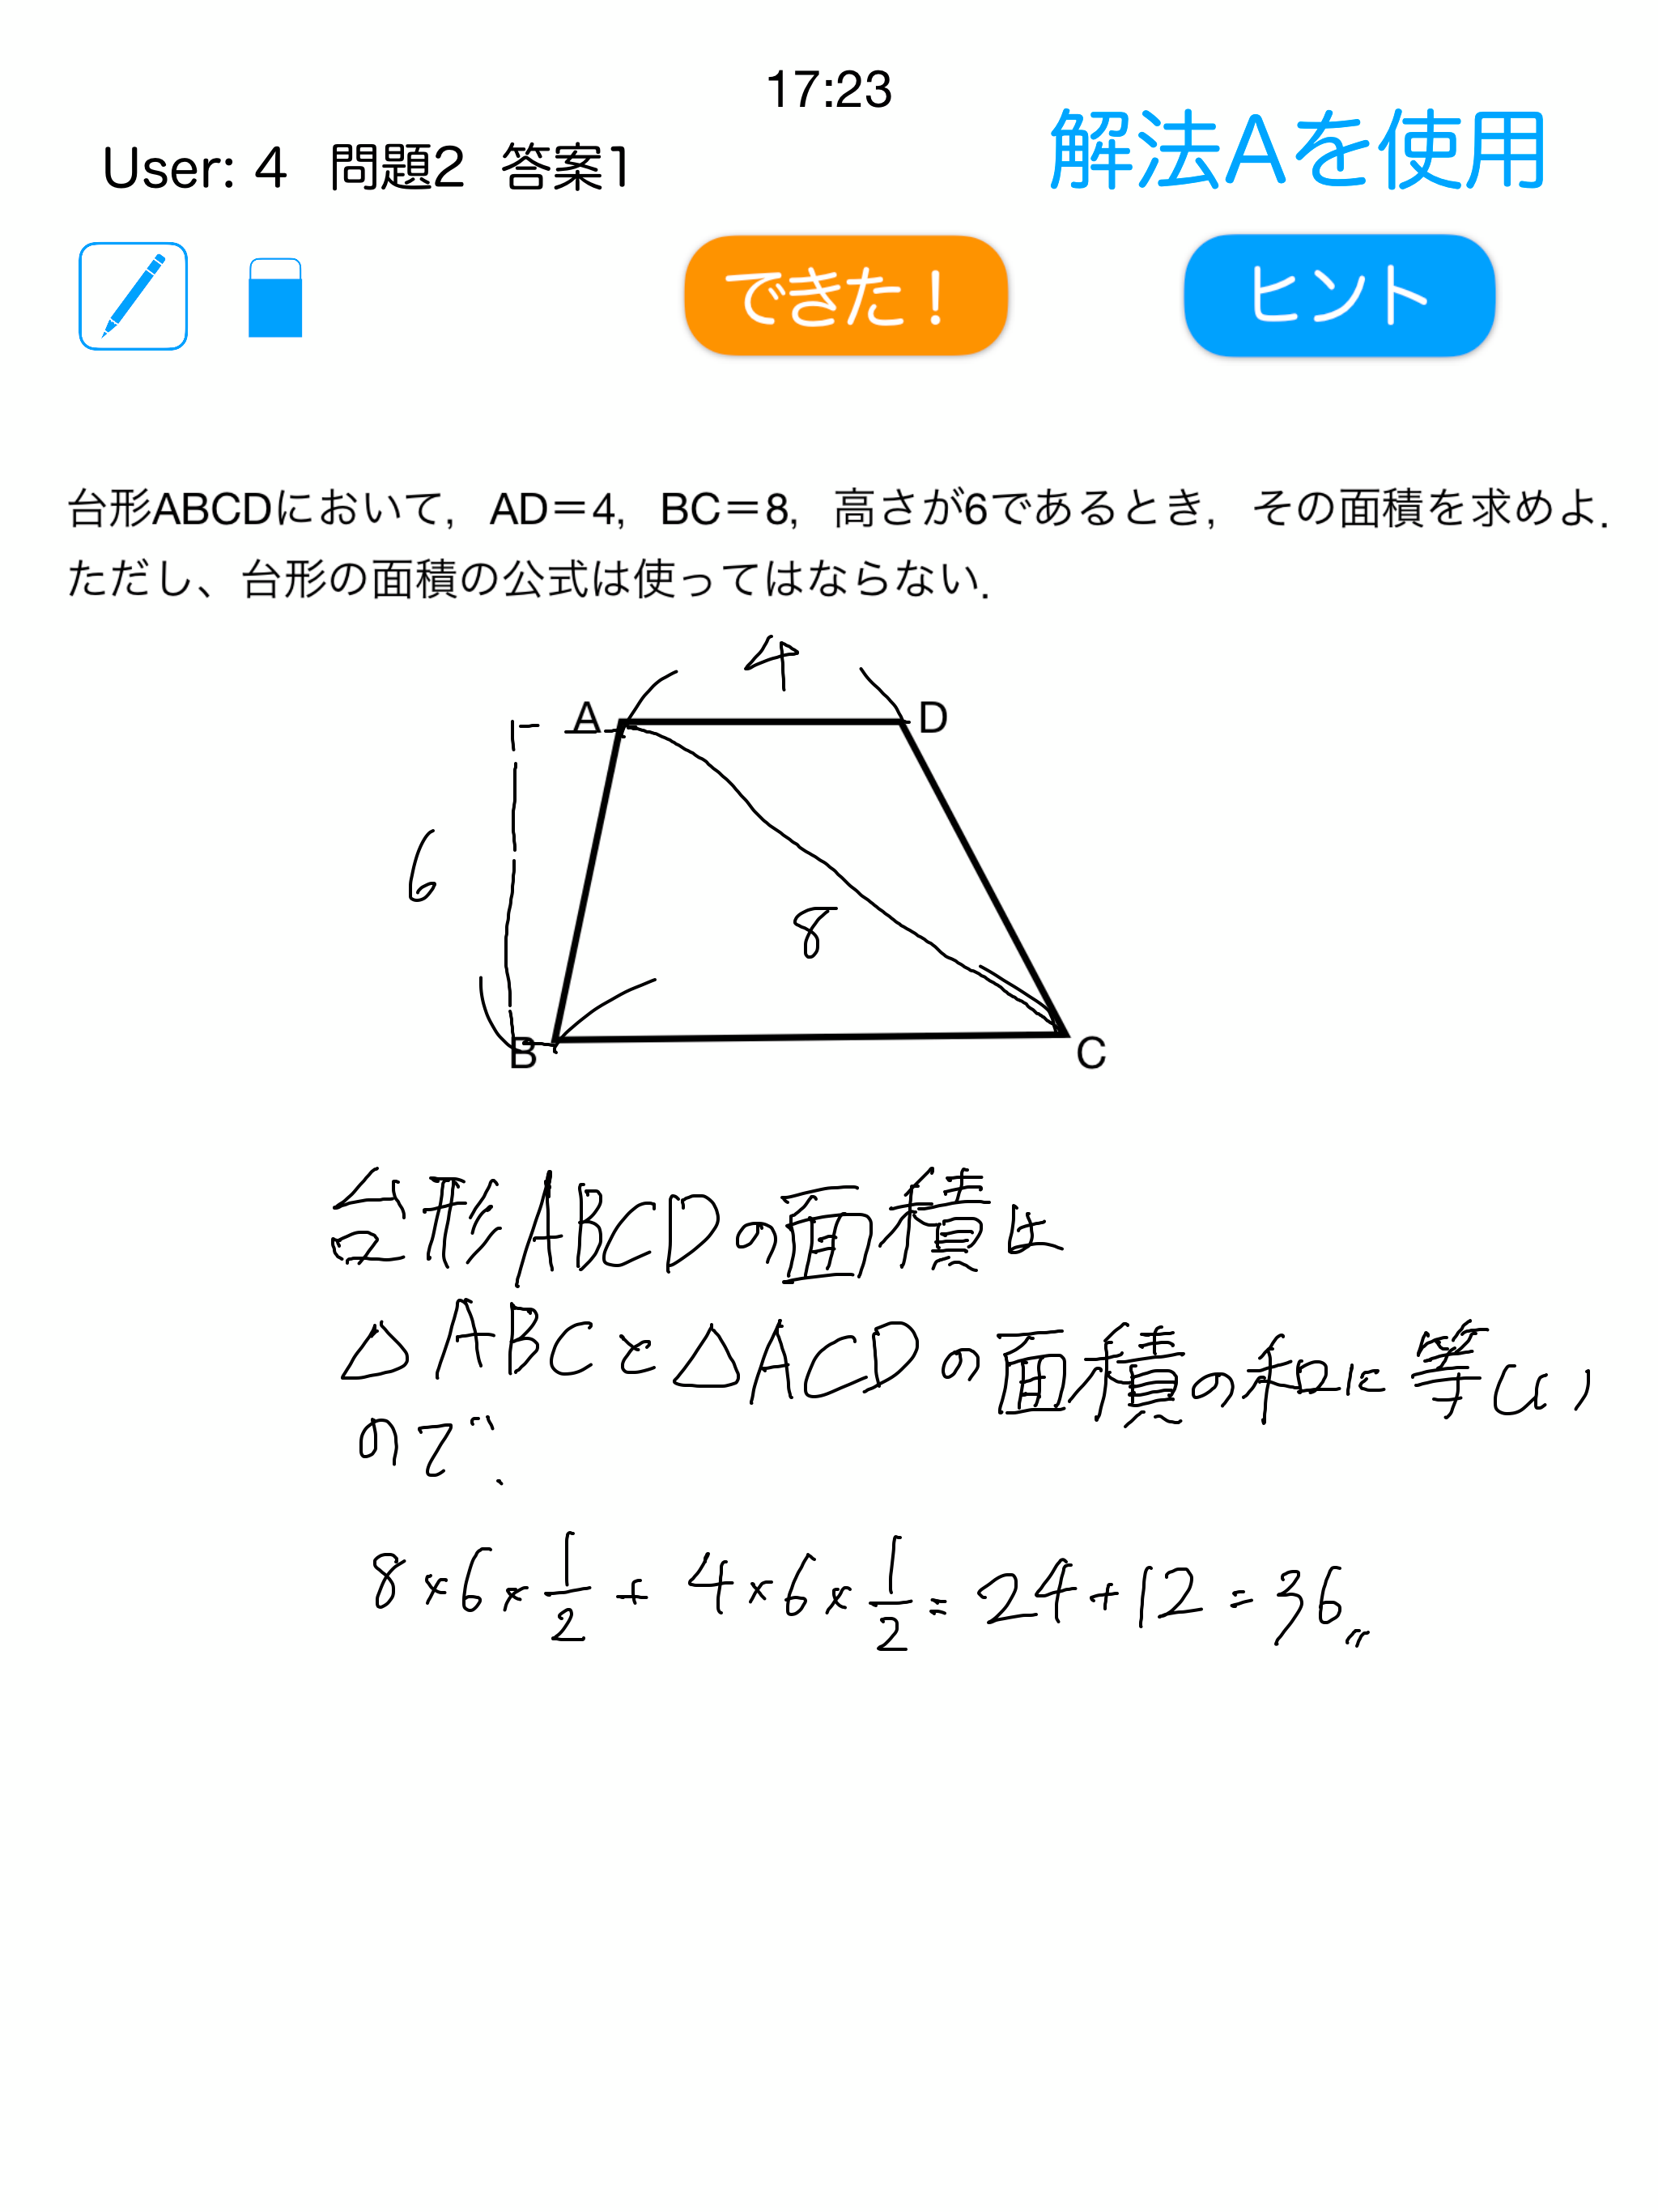 17:23
User: 4 問題2 答案1
解法Aを使用
できた！
ヒント
台形ABCDにおいて，AD＝4，BC＝8，高さが6であるとき，その面積を求めよ．
ただし、台形の面積の公式は使ってはならない．
4
A
D
6
8
B
C
台形ABCDの面積は
△ABCと△ACDの面積の和に等しい
ので.
8×6×1/2 + 4×6×1/2 = 24+12 = 36〃